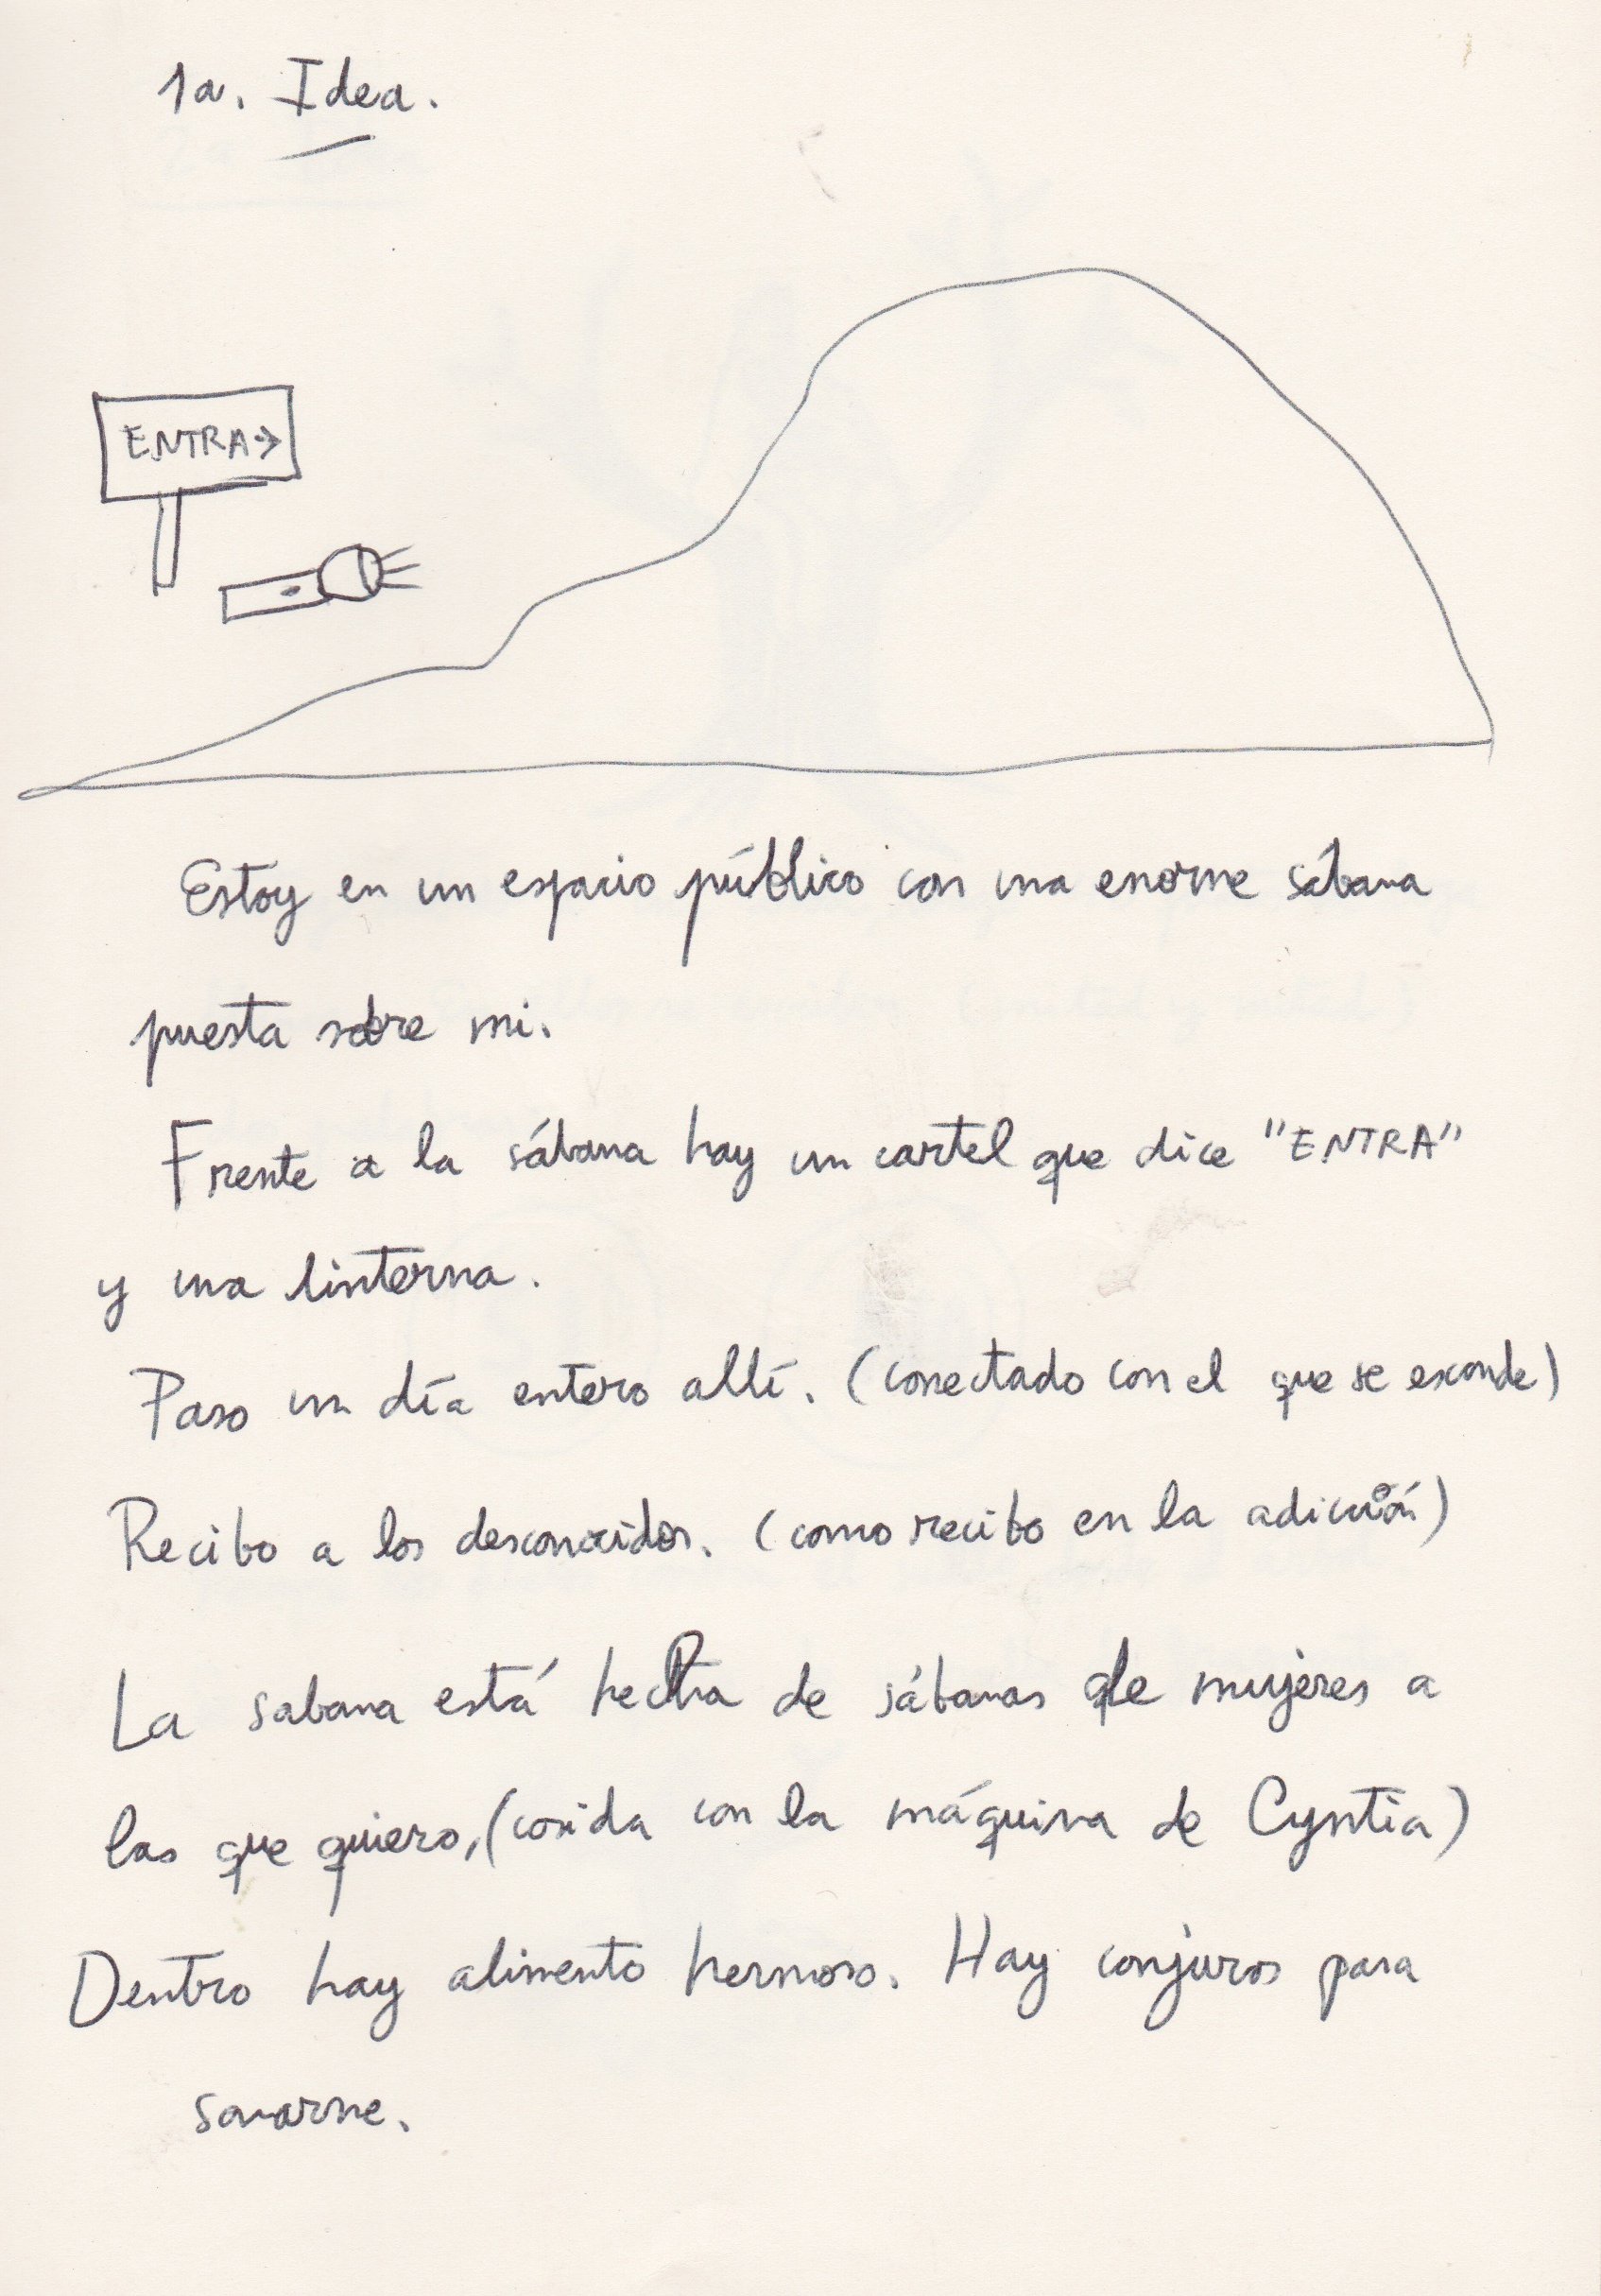 1a. Idea.
ENTRA→
Estoy en un espacio público con una enorme sábana
puesta sobre mi.
Frente a la sábana hay un cartel que dice "ENTRA"
y una linterna.
Paso un día entero allí. (conectado con el que se esconde)
Recibo a los desconocidos. (como recibo en la adicción)
La sabana está hecha de sábanas de mujeres a
las que quiero, (cosida con la máquina de Cyntia)
Dentro hay alimento hermoso. Hay conjuros para
sanarme.